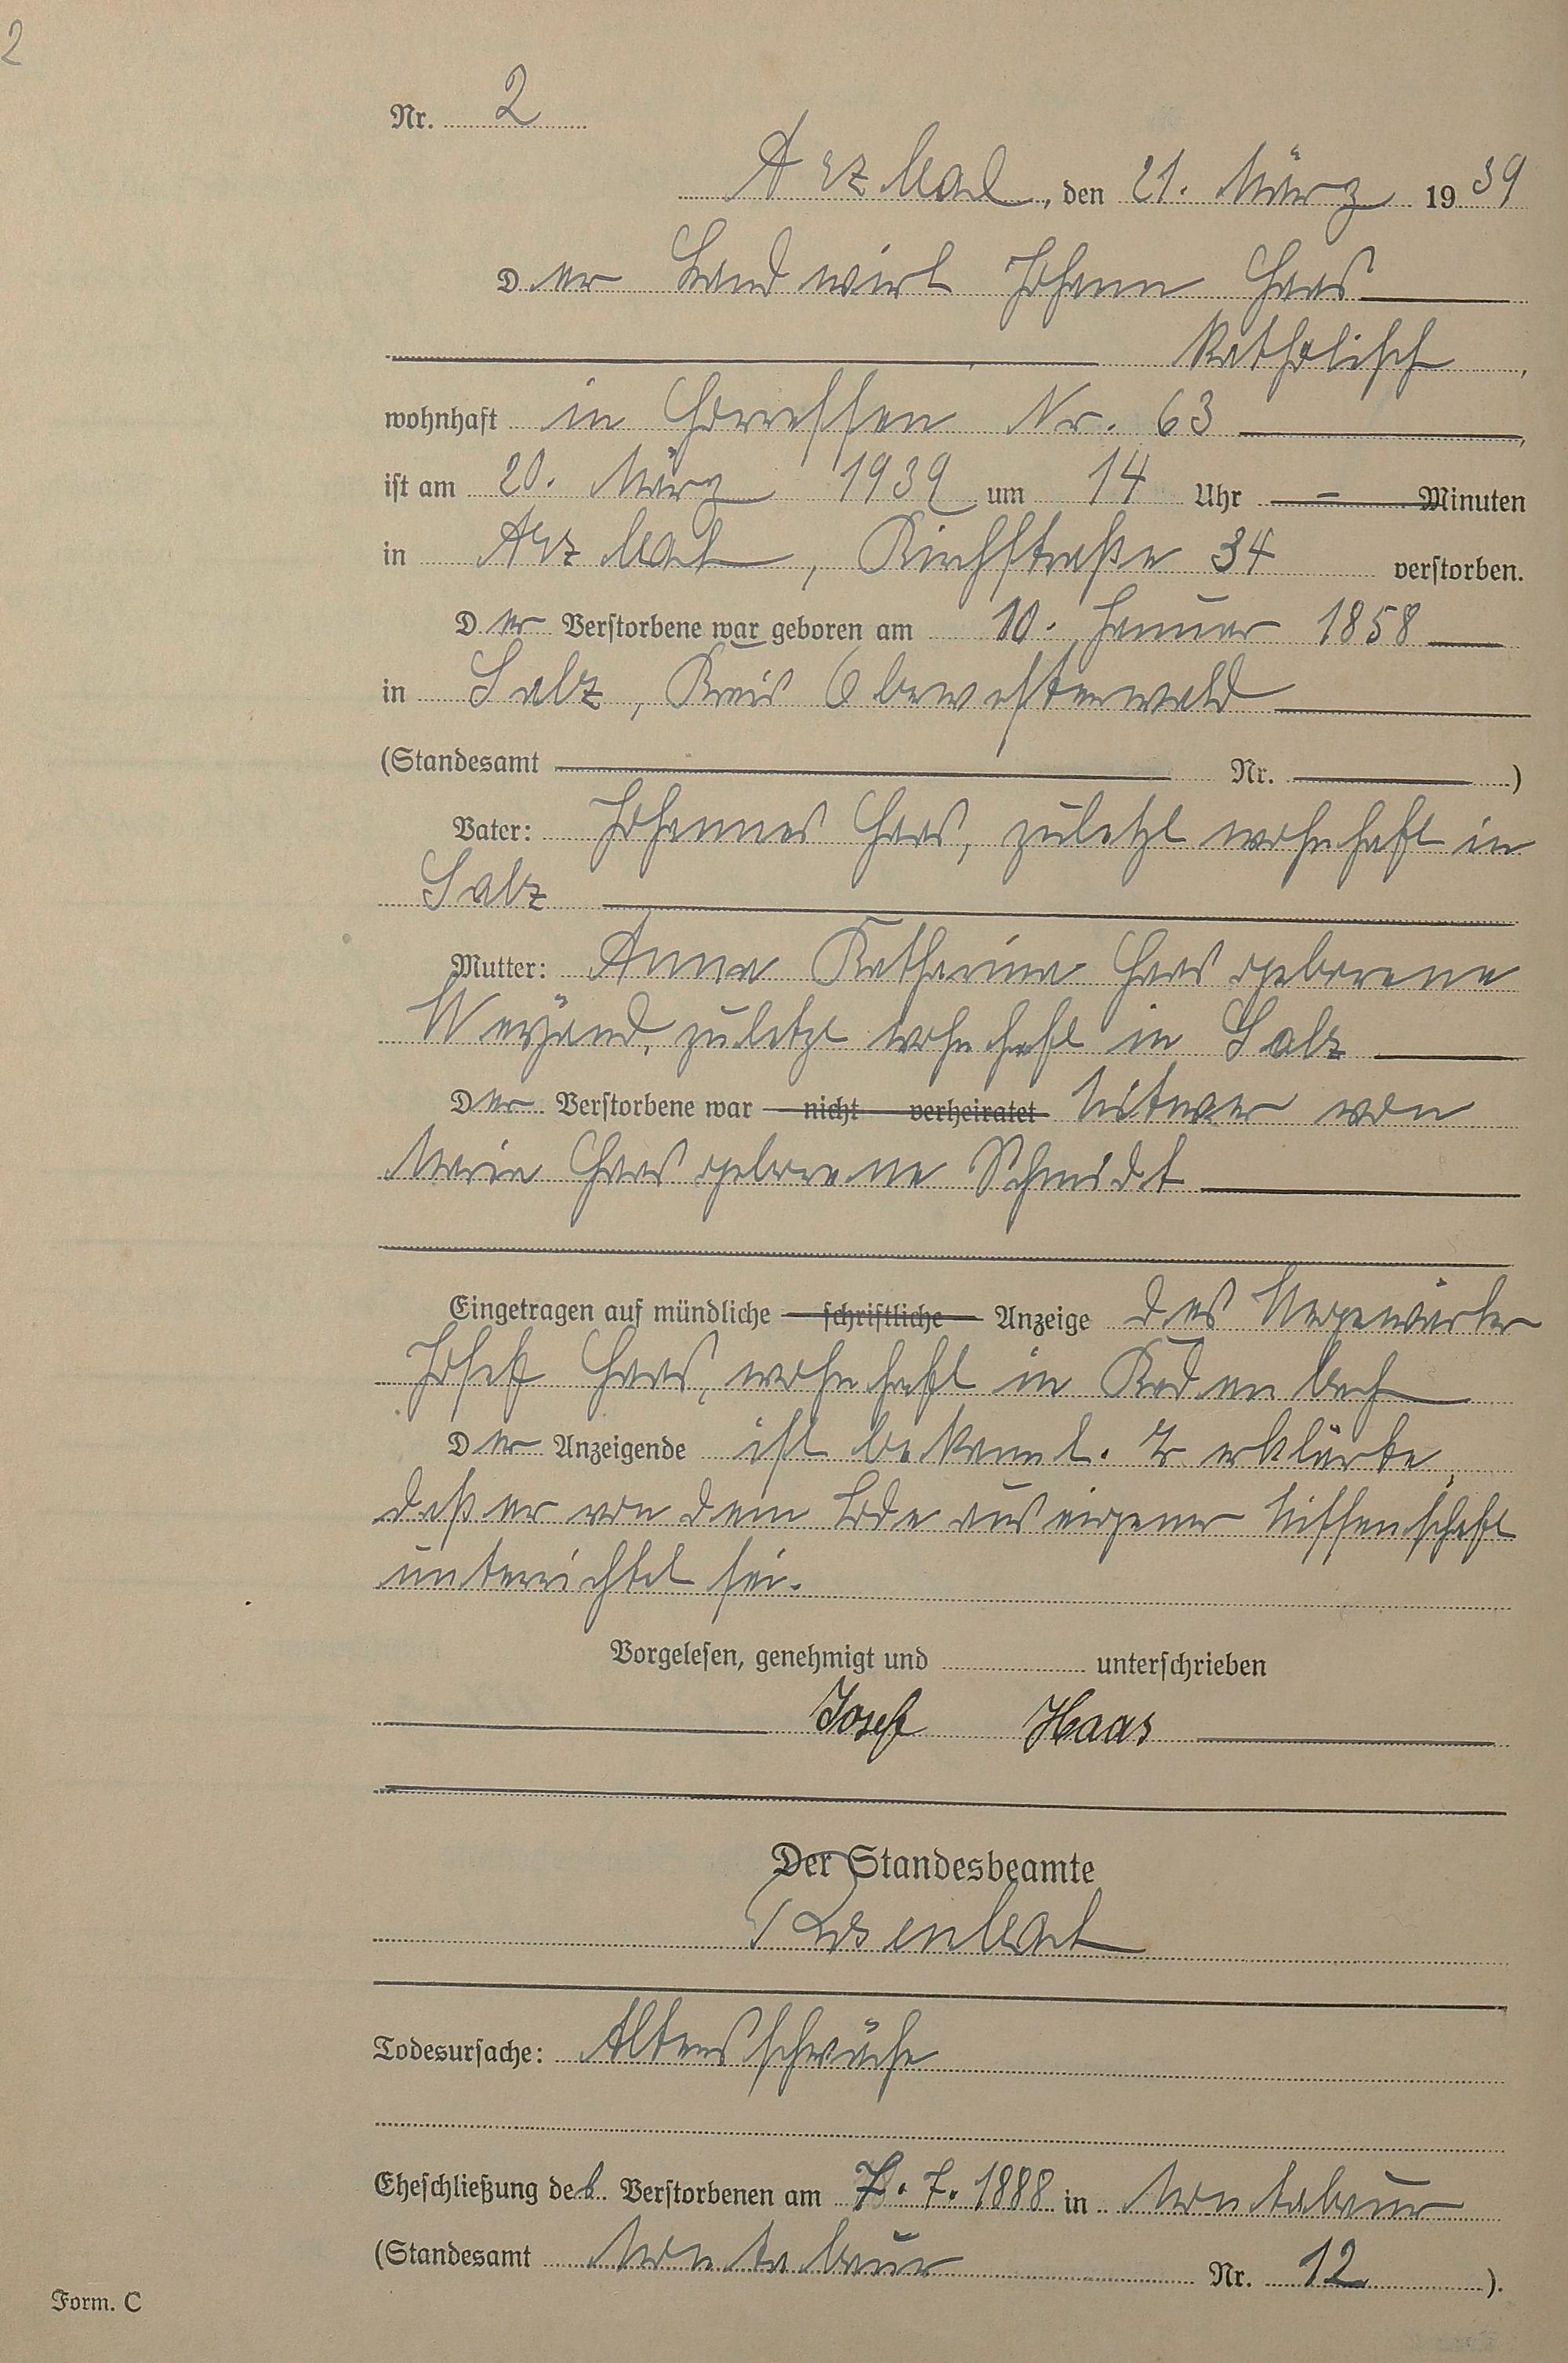 2
Nr. 2
Arzbach, den 21. März 1939
Der Landwirt Johann Haas
katholisch,
wohnhaft in Horressen Nr. 63,
ist am 20. März 1939 um 14 Uhr – Minuten
in Arzbach, Kirchstraße 34 verstorben.
Der Verstorbene war geboren am 10. Januar 1858
in Salz, Kreis Oberwesterwald
(Standesamt Nr. )
Vater: Johannes Haas, zuletzt wohnhaft in
Salz
Mutter: Anna Katharina Haas geborene
Weyand, zuletzt wohnhaft in Salz
Der Verstorbene war nicht verheiratet Witwer von
Maria Haas geborene Schmidt
Eingetragen auf mündliche schriftliche Anzeige des Wegewärter
Josef Haas, wohnhaft in Kadenbach
Der Anzeigende ist bekannt. Er erklärte,
daß er von dem Tode aus eigener Wissenschaft
unterrichtet sei.
Vorgelesen, genehmigt und unterschrieben
Josef Haas
Der Standesbeamte
Todesursache: Altersschwäche
Eheschließung des Verstorbenen am 7. 7. 1888 in Montabaur
(Standesamt Montabaur Nr. 12 ).
Form. C